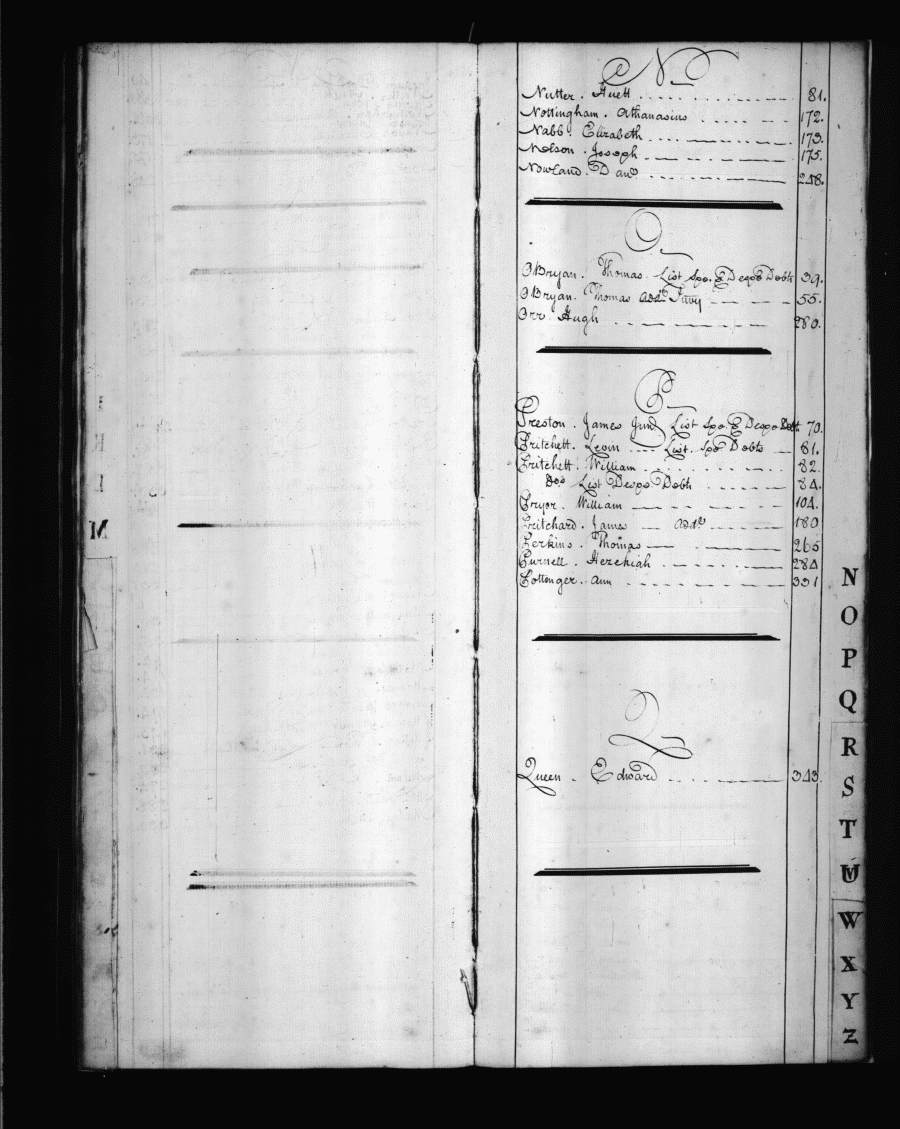 M
N
Nutter. Huett 81.
Nottingham. Athanasius 172.
Nabb Elizabeth 173.
Nelson. Joseph 175.
Nowland. 248.
O
OBryan. Thomas. List Spe. & Despe Debts 39.
OBryan. Thomas addl Invy 55.
Orr Hugh 280.
P
Preston. James Junr List Spe. & Despe Debt. 70.
Pritchett. Levin List. Spe Debts 81.
Pritchett. William 82.
Do List Despe Debts 84.
Pryor. William 104.
Pritchard. James addl 180
Perkins. Thomas 265
Purnell. Hezekiah 284
Pottenger. Ann 331
Q
Queen. Edward 343.
N
O
P
Q
R
S
T
W
X
Y
Z